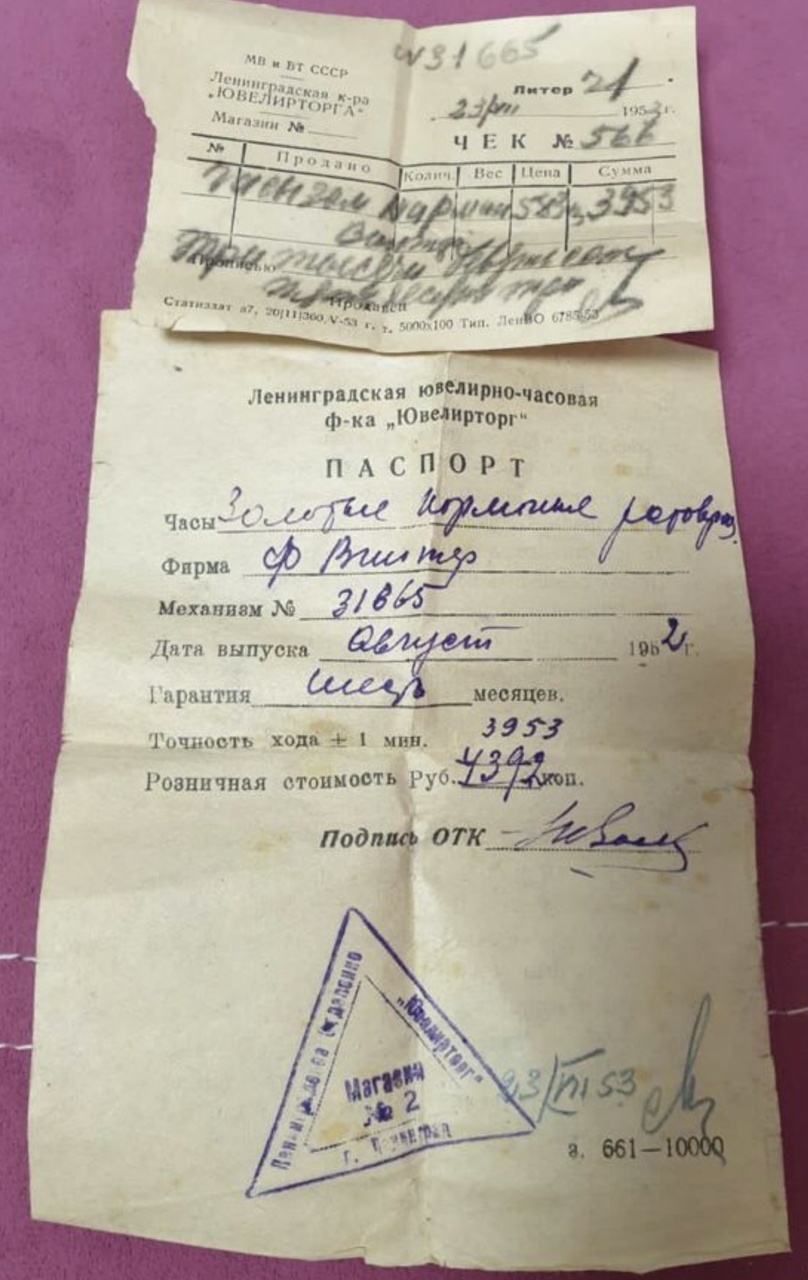 №31665
МВ и ВТ СССР
Ленинградская к-ра
„ЮВЕЛИРТОРГА“
Магазин №
Литер 21
23/VII 1953г.
ЧЕК № 566
№ Продано Колич. Вес Цена Сумма
Часы зол карман 583 3953
Прописью Три тысячи
пятьдесят три
Продавец
Статиздат а7, 20|11|360. V-53 г. т. 5000х100 Тип. ЛенВО 6785-53
Ленинградская ювелирно-часовая
ф-ка „Ювелирторг“
ПАСПОРТ
Часы Золотые карманные
Фирма Ф Винтер
Механизм № 31665
Дата выпуска Август 1952г.
Гарантия шесть месяцев.
Точность хода ± 1 мин. 3953
Розничная стоимость Руб. 4392 коп.
Подпись ОТК
Ленинградское отделение
„Ювелирторг“
Магазин
№ 2
г. Ленинград
23/VII 53
з. 661—10000